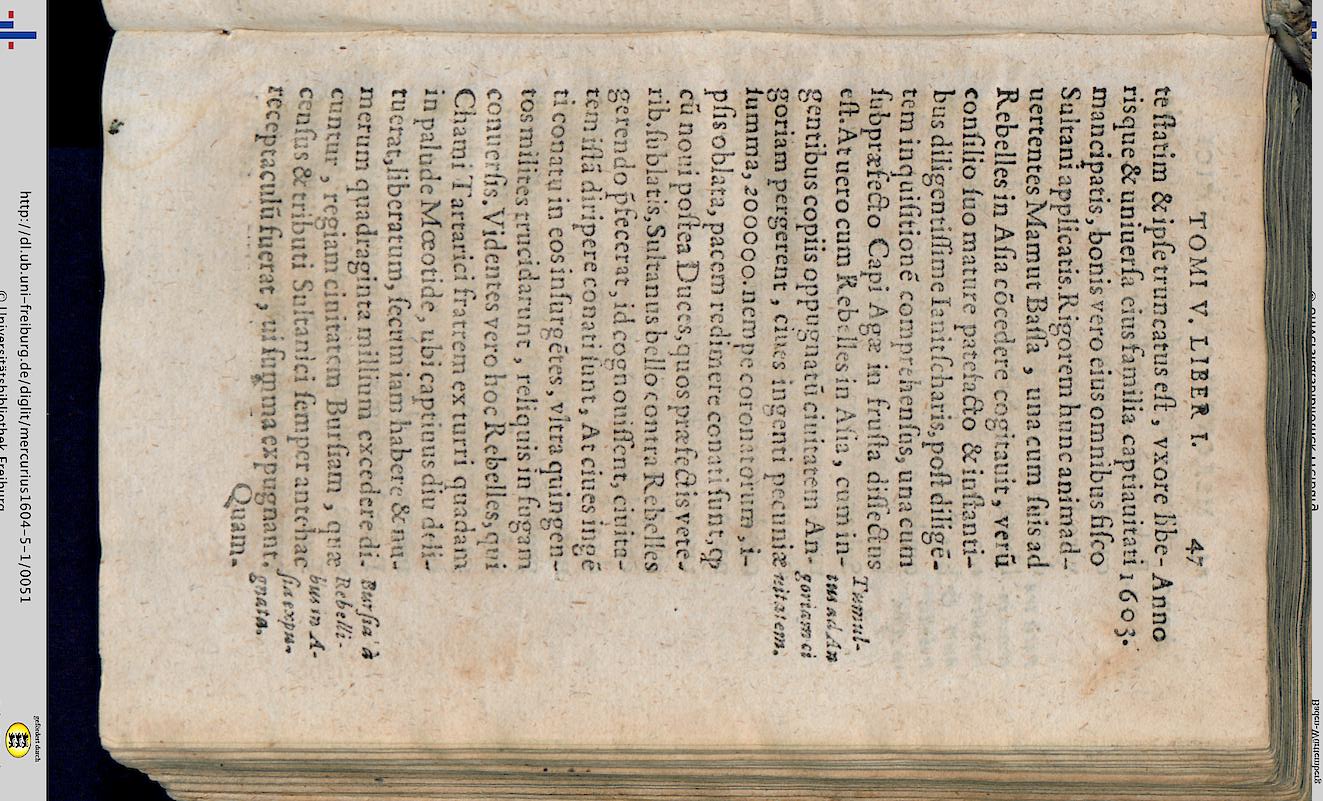 TOMI V. LIBER I. 47
te ſtatim & ipſe truncatus eſt, vxore libe-
riſque & uniuerſa eius familia captiuitati
mancipatis, bonis vero eius omnibus fiſco
Sultani applicatis. Rigorem hunc animad-
uertentes Mamut Baſſa, una cum ſuis ad
Rebelles in Aſia cōcedere cogitauit, verū
conſilio ſuo mature patefacto & inſtanti-
bus diligentiſſime Ianitſcharis, poſt diligē-
tem inquiſitionē comprehenſus, una cum
ſubpræfecto Capi Agæ in fruſta diſſectus
eſt. At uero cum Rebelles in Aſia, cum in-
gentibus copiis oppugnatū ciuitatem An-
goriam pergerent, ciues ingenti pecuniæ
ſumma, 200000. nempe coronatorum, i-
pſis oblata, pacem redimere conati ſunt, ꝙ
cū noui poſtea Duces, quos præfectis vete-
rib. ſublatis, Sultanus bello contra Rebelles
gerendo p̄fecerat, id cognouiſſent, ciuita-
tem iſtā diripere conati ſunt, At ciues ingē
ti conatu in eos inſurgētes, vltra quingen-
tos milites trucidarunt, reliquis in fugam
conuerſis. Videntes vero hoc Rebelles, qui
Chami Tartarici fratrem ex turri quadam
in palude Mœotide, ubi captiuus diu deli-
tuerat, liberatum, ſecum iam habere & nu-
merum quadraginta millium excedere di-
cuntur, regiam ciuitatem Burſiam, quæ
cenſus & tributi Sultanici ſemper antehac
receptaculū fuerat, ui ſumma expugnant.
Quam.
Anno
1603.
Tumul-
tus ad An
goriam ci
uitatem.
Burſia à
Rebelli-
bus in A-
ſia expu-
gnata.
http://dl.ub.uni-freiburg.de/diglit/mercurius1604-5-1/0051
© Universitätsbibliothek Freiburg
gefördert durch